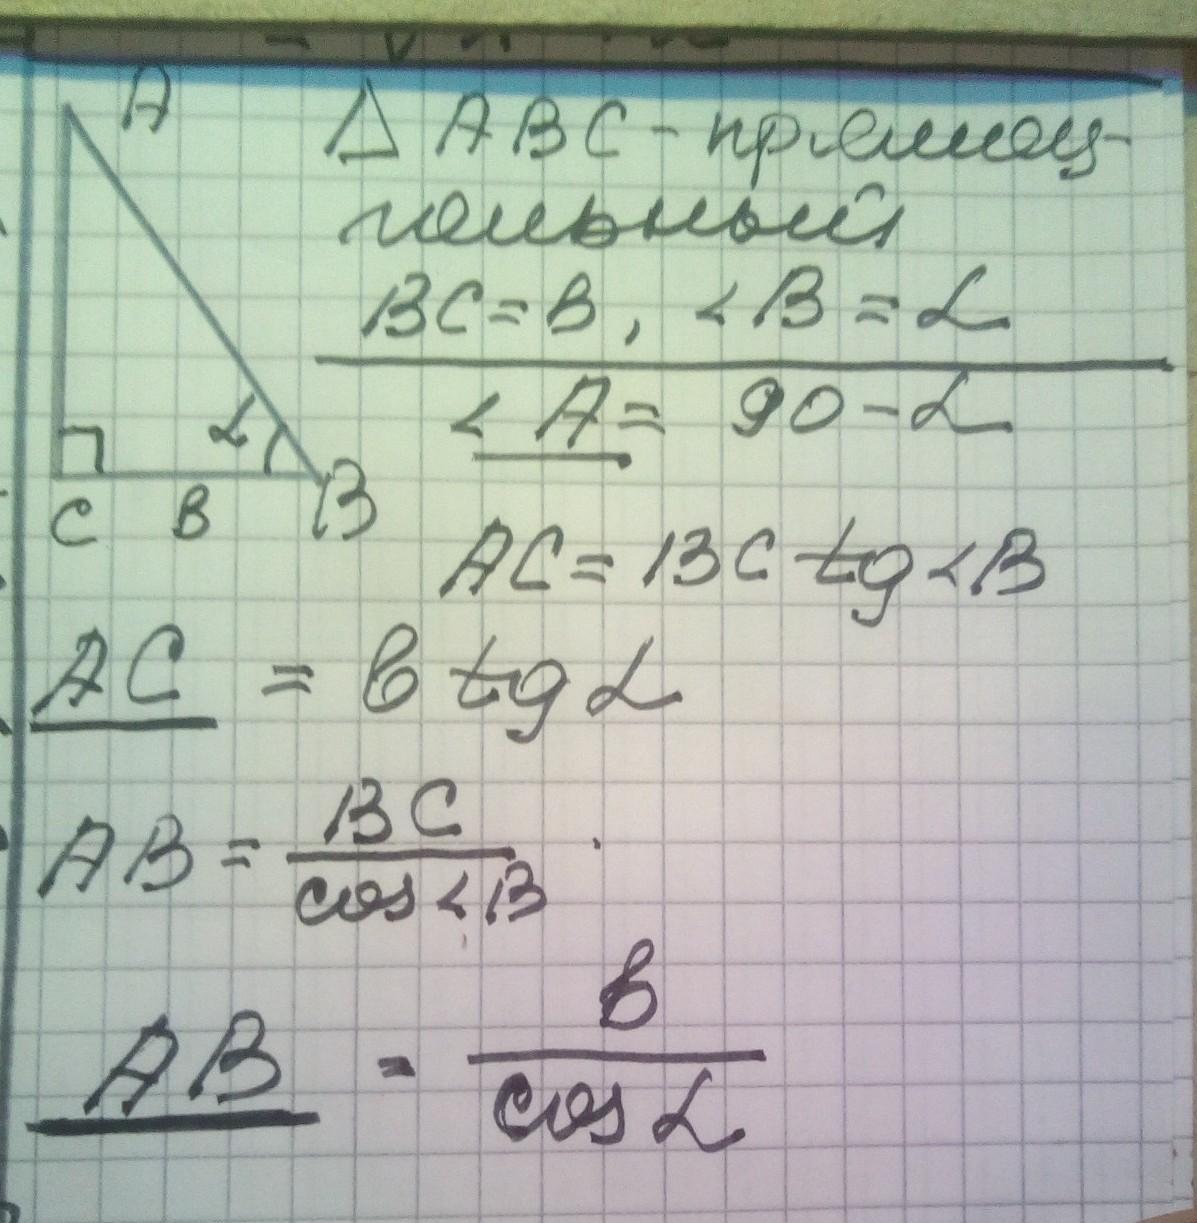 A
△ ABC - прямоуг-
гольный
BC = в, ∠B = α
α
C в B
∠A = 90 - α
AC = BC tg ∠B
AC = в tg α
AB = BC / cos ∠B
AB = в / cos α